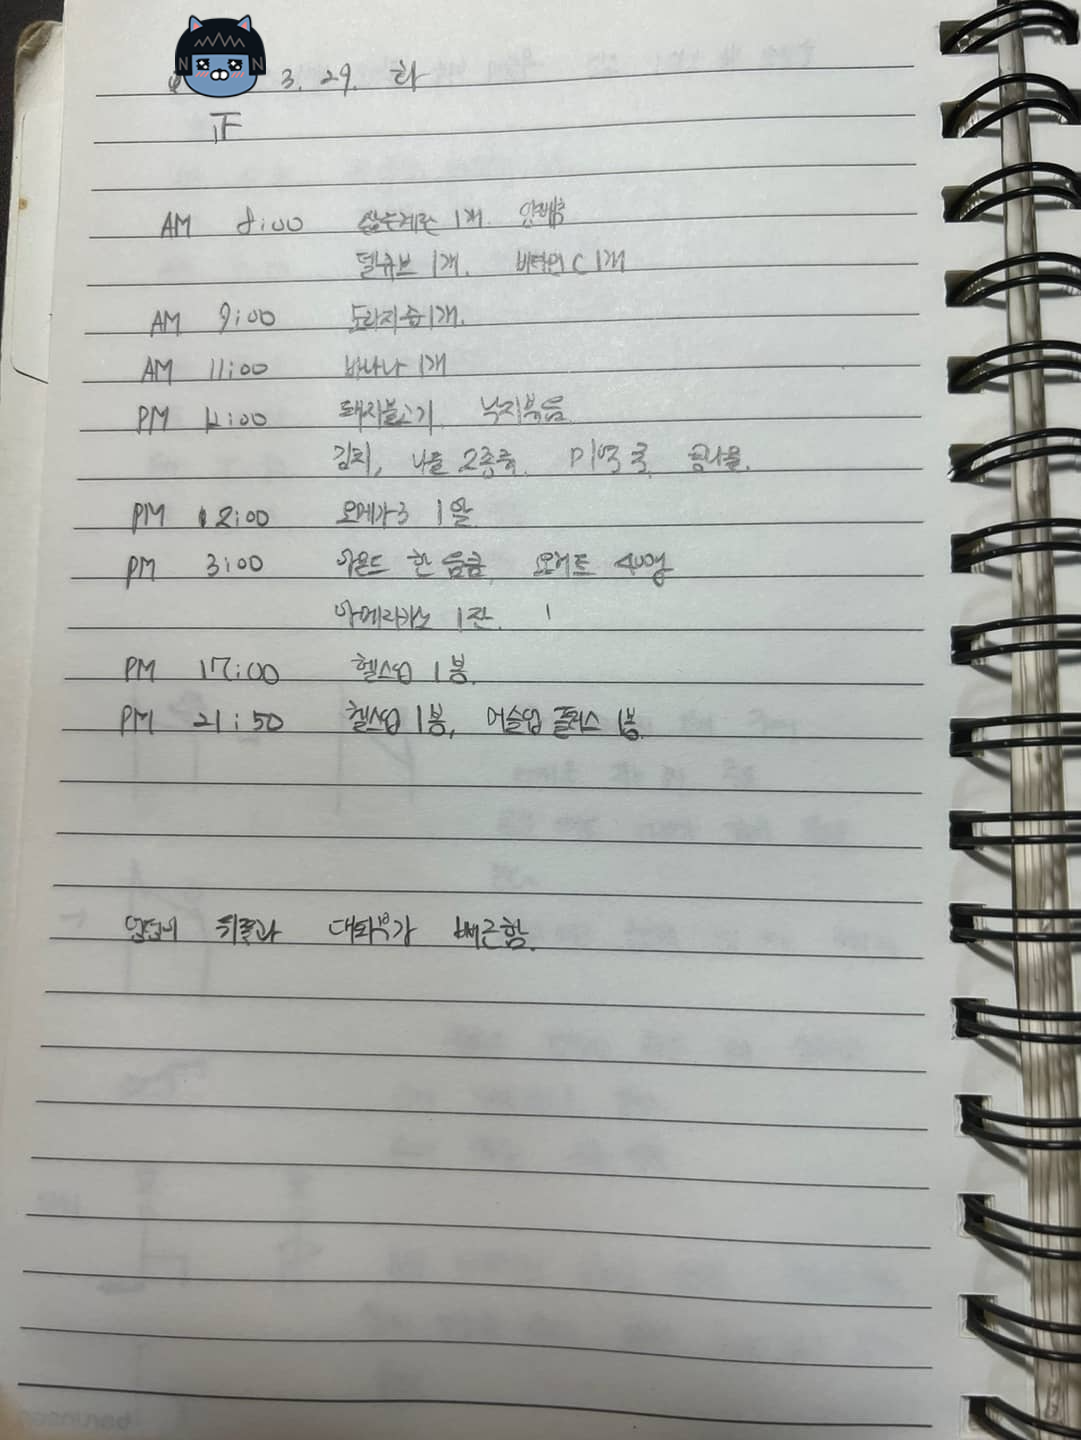 3. 29. 화
正
AM 8:00 삶은계란 1개.
1개. 비타민C 1개
AM 9:00 도라지즙1개.
AM 11:00 바나나 1개
PM 12:00 돼지불고기 낙지볶음
김치, 나물 2종류. 미역국 콩나물.
PM 12:00 오메가3 1알
PM 3:00 아몬드 한 움큼, 요거트 400g
아메리카노 1잔.
PM 17:00 헬스업 1봉.
PM 21:50 헬스업 1봉, 머슬업 플러스 1봉.
엉덩이 뒤쪽과 대퇴부가 뻐근함.